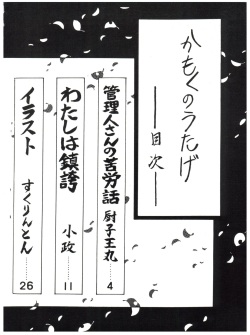 かもくのうたげ
──目次──
管理人さんの苦労話 厨子王丸……4
わたしは鎮誇 小政……11
イラスト すくりんとん……26